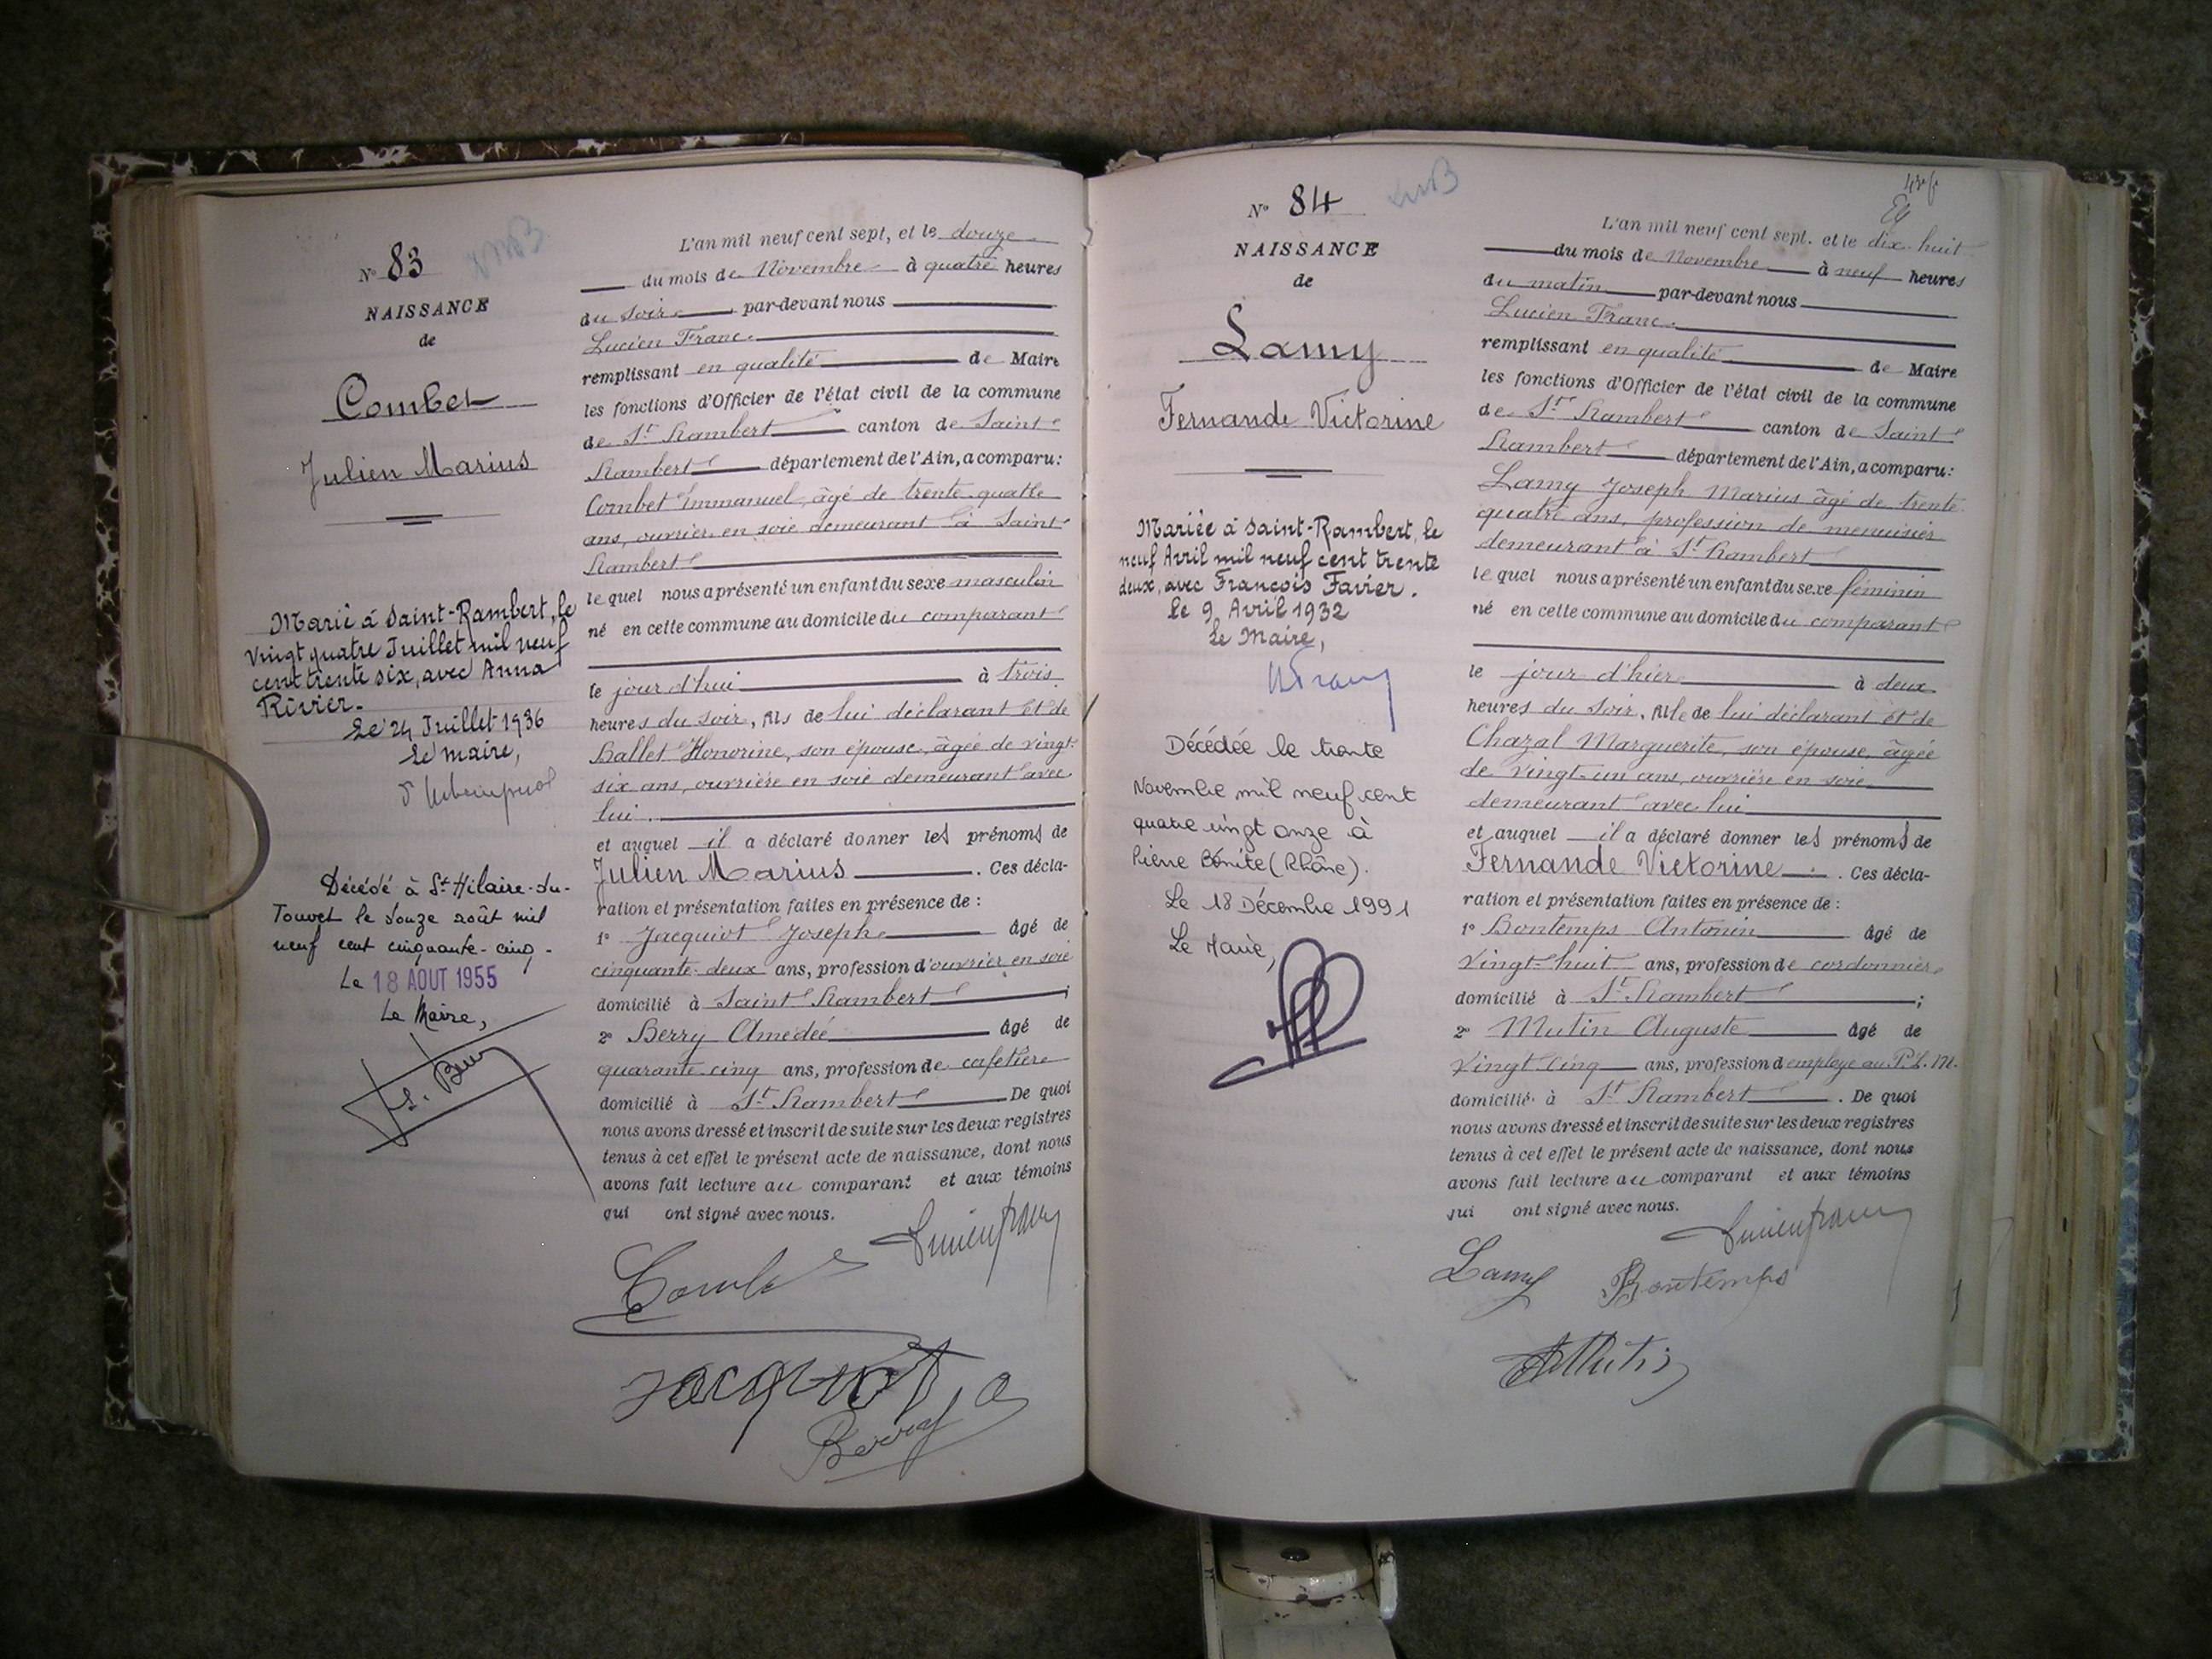 N° 83
NAISSANCE
de
Combet
Julien Marius
Marié à Saint-Rambert, le
vingt quatre Juillet mil neuf
cent trente six, avec Anna
Rivier.
Le 24 Juillet 1936
Le maire,
Décédé à St Hilaire-du-
Touvet le douze août mil
neuf cent cinquante-cinq.
Le 18 AOUT 1955
Le Maire,
L'an mil neuf cent sept, et le douze
du mois de Novembre à quatre heures
du soir par-devant nous
Lucien Franc.
remplissant en qualité de Maire
les fonctions d'Officier de l'état civil de la commune
de St Rambert canton de Saint
Rambert département de l'Ain, a comparu:
Combet Emmanuel, âgé de trente-quatre
ans, ouvrier en soie demeurant à Saint
Rambert
lequel nous a présenté un enfant du sexe masculin
né en cette commune au domicile du comparant
le jour d'hui à trois
heures du soir, fils de lui déclarant et de
Ballet Honorine, son épouse, âgée de vingt-
six ans, ouvrière en soie demeurant avec
lui.
et auquel il a déclaré donner les prénoms de
Julien Marius. Ces décla-
ration et présentation faites en présence de :
1° Jacquiot Joseph âgé de
cinquante-deux ans, profession d'ouvrier en soie
domicilié à Saint Rambert ;
2° Berry Amédée âgé de
quarante cinq ans, profession de cafetier
domicilié à St Rambert De quoi
nous avons dressé et inscrit de suite sur les deux registres
tenus à cet effet le présent acte de naissance, dont nous
avons fait lecture au comparant et aux témoins
qui ont signé avec nous.
Lucien Franc
Combet
Jacquiot
Berry a
N° 84
NAISSANCE
de
Lamy
Fernande Victorine
Mariée à Saint-Rambert, le
neuf Avril mil neuf cent trente
deux, avec François Favier.
Le 9 Avril 1932
Le Maire,
Décédée le trente
Novembre mil neuf cent
quatre vingt onze à
Pierre Bénite (Rhône).
Le 18 Décembre 1991
Le Maire,
84
L'an mil neuf cent sept. et le dix-huit
du mois de Novembre à neuf heures
du matin par-devant nous
Lucien Franc.
remplissant en qualité de Maire
les fonctions d'Officier de l'état civil de la commune
de St Rambert canton de Saint
Rambert département de l'Ain, a comparu:
Lamy Joseph Marius âgé de trente
quatre ans, profession de menuisier
demeurant à St Rambert
lequel nous a présenté un enfant du sexe féminin
né en cette commune au domicile du comparant
le jour d'hier à deux
heures du soir, fille de lui déclarant et de
Chazal Marguerite, son épouse, âgée
de vingt-un ans, ouvrière en soie
demeurant avec lui
et auquel il a déclaré donner les prénoms de
Fernande Victorine. Ces décla-
ration et présentation faites en présence de :
1° Bontemps Antonin âgé de
vingt-huit ans, profession de cordonnier
domicilié à St Rambert ;
2° Mutin Auguste âgé de
vingt cinq ans, profession d employé au P.L.M.
domicilié à St Rambert. De quoi
nous avons dressé et inscrit de suite sur les deux registres
tenus à cet effet le présent acte de naissance, dont nous
avons fait lecture au comparant et aux témoins
qui ont signé avec nous.
Lucien Franc
Lamy Bontemps
A Mutin